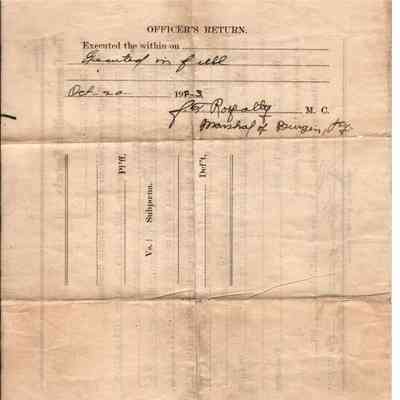 OFFICER'S RETURN.
Executed the within on
Executed in full
Oct - 20 - 192-3
J.T. Royalty M. C.
Marshal of Burgin, Ky.
Pl'ff,
Vs. } Subpœna.
Def't,